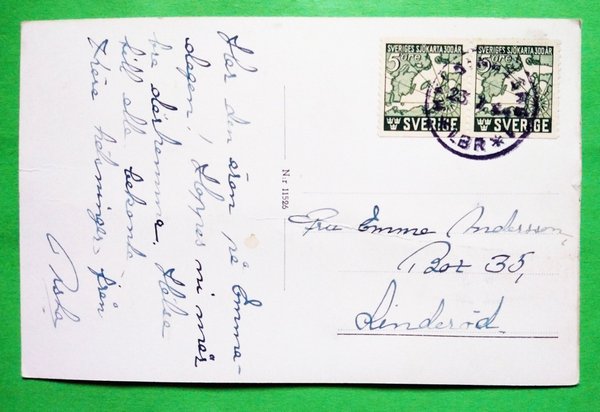 Har din ären på Emma-
dagen! Hoppas ni mår
bra därhemma. Hälsa
till alla bekanta
Flera hälsningar från
SVERIGES SJÖKARTA 300 ÅR
5 öre
SVERIGE
SVERIGES SJÖKARTA 300 ÅR
5 öre
SVERIGE
N:r 11526
Fru Emma Andersson,
Box 35,
Linderöd.